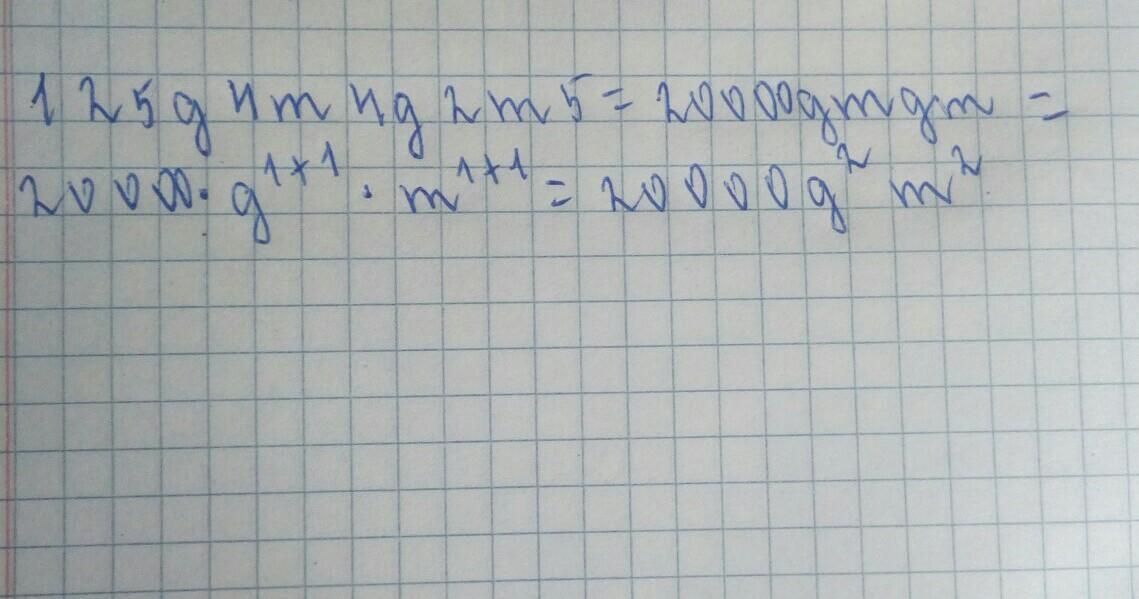 125g4m4g2m5=20000gmgm=
20000·g¹⁺¹·m¹⁺¹=20000g²m²